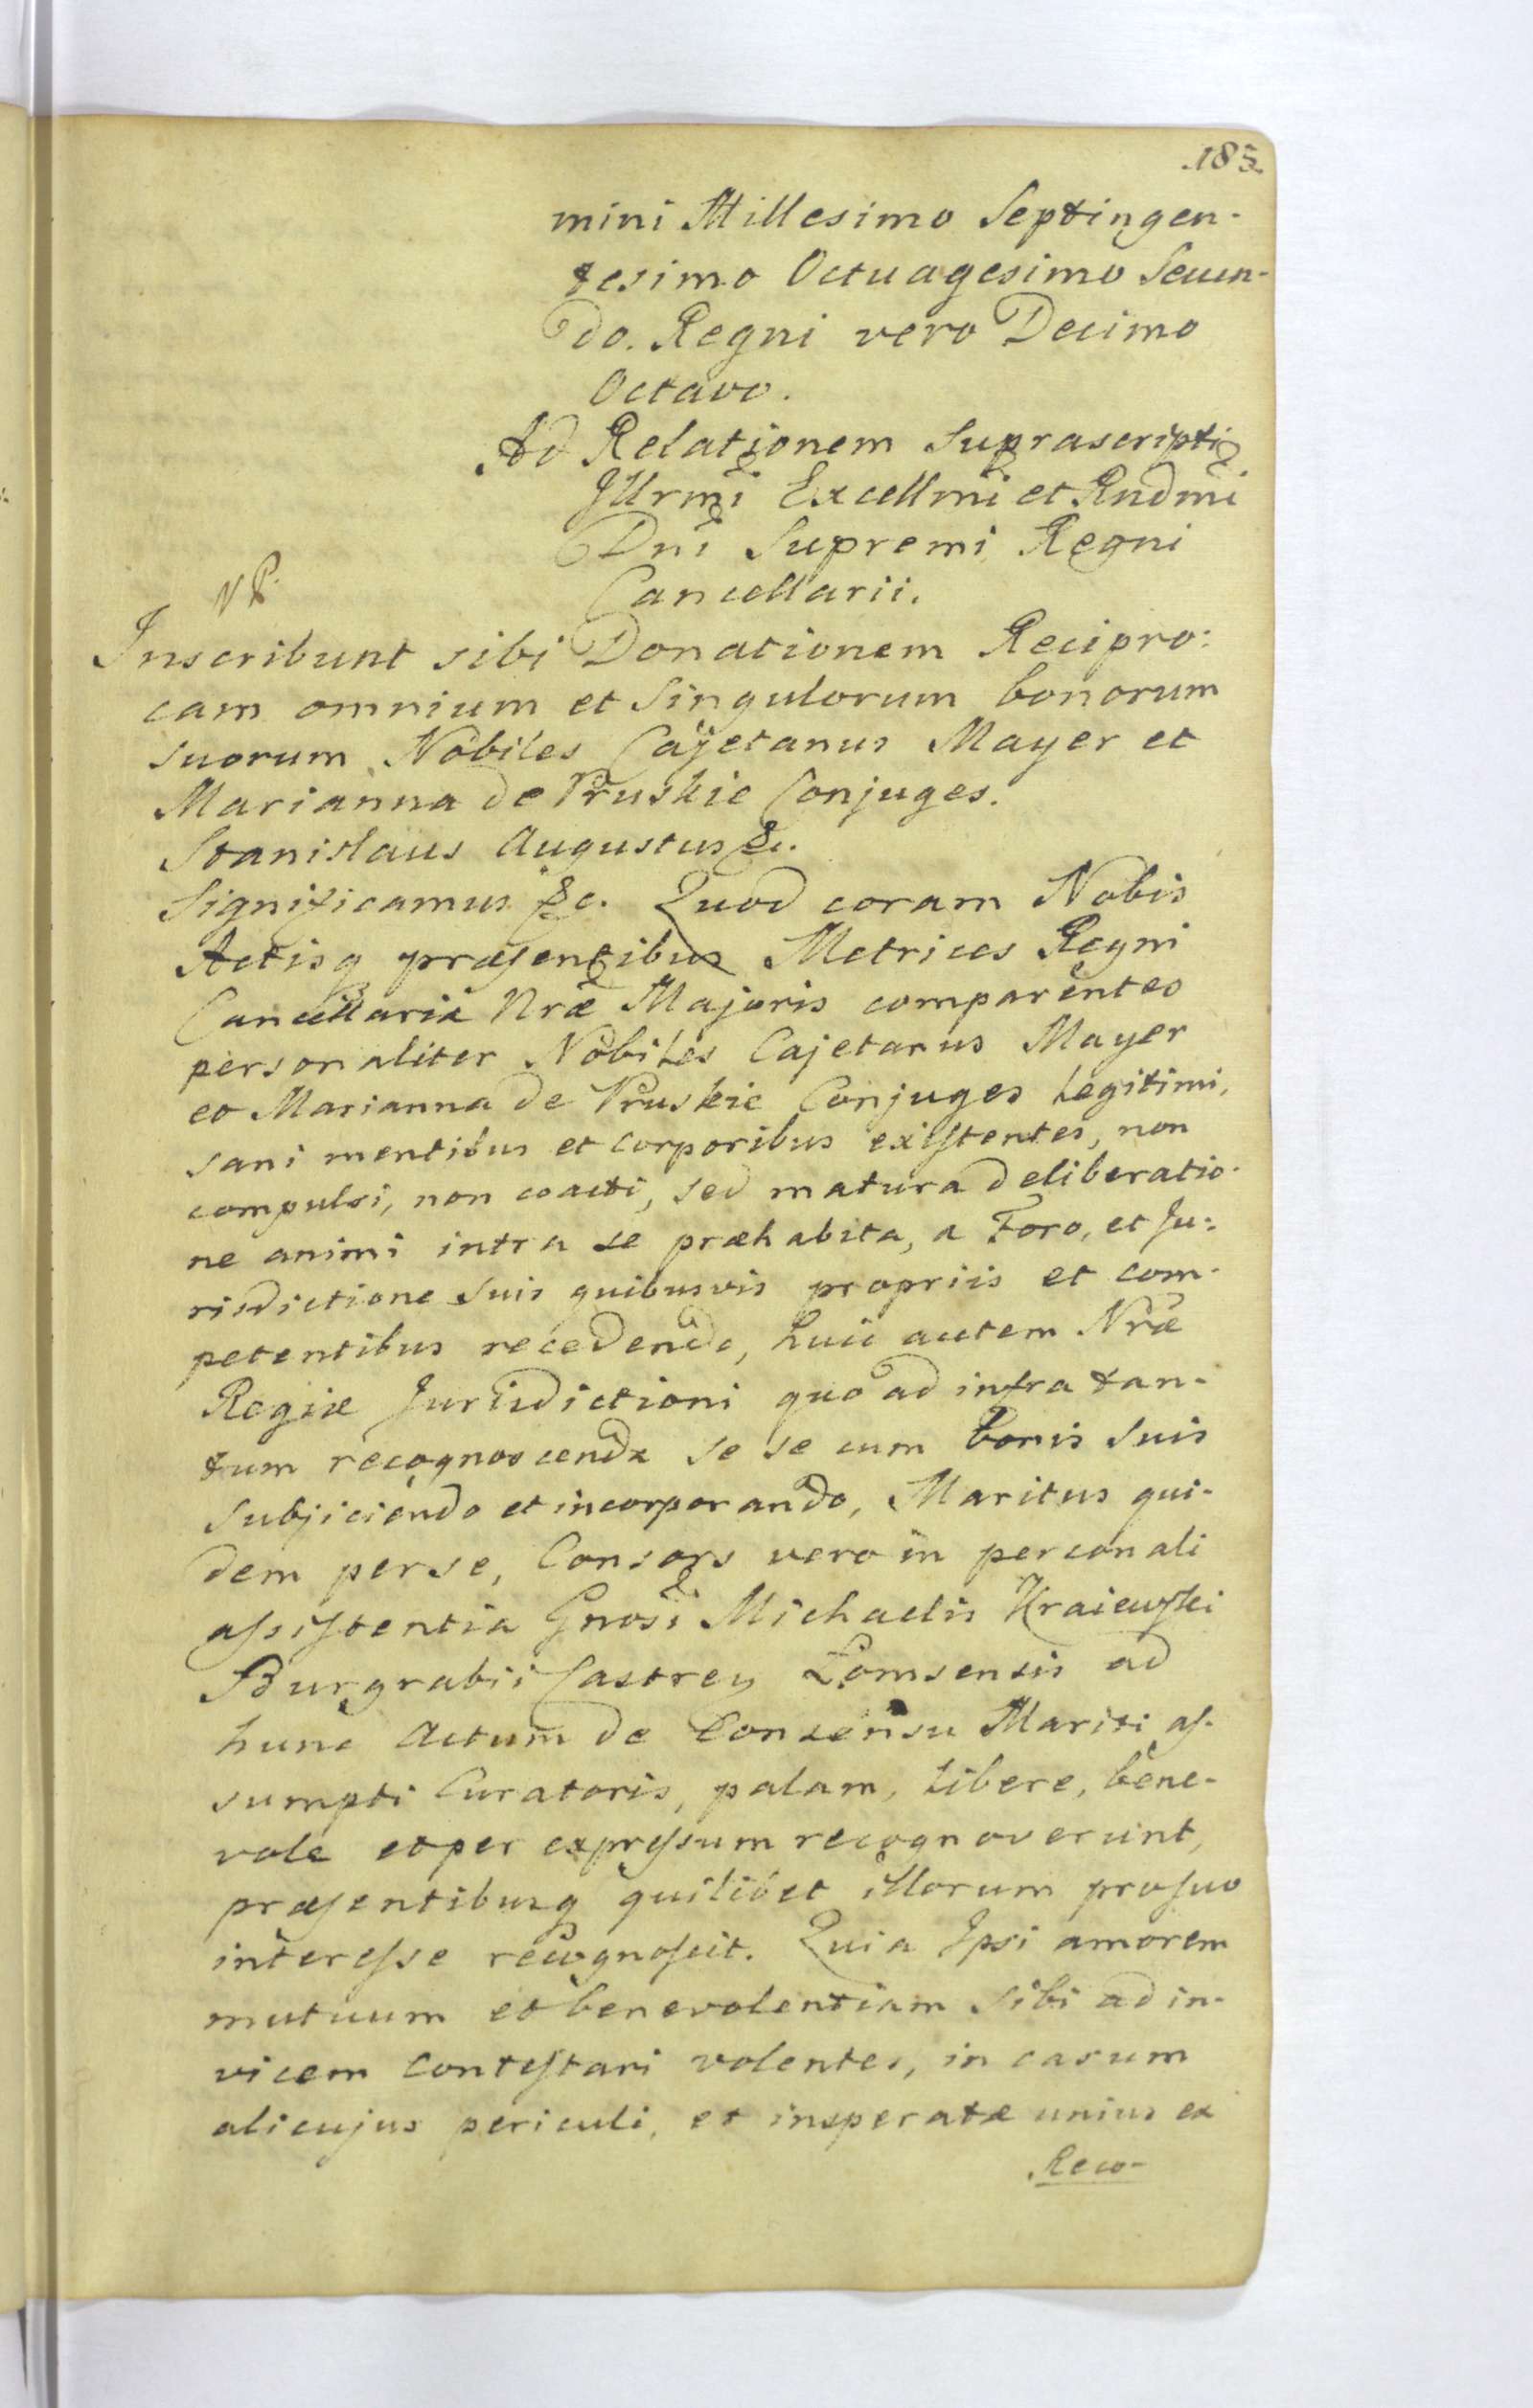 .185.
mini Millesimo Septingen-
tesimo Octuagesimo Secun-
do. Regni vero Decimo
Octavo.
Ad Relationem Suprascripti
Jllrmi Excellmi et Rndmi
Dni Supremi Regni
Cancellarii.
Inscribunt sibi Donationem Recipro:
cam omnium et Singulorum bonorum
suorum Nobiles Cajetanus Mayer et
Marianna de Pruskie Conjuges.
Stanislaus Augustus &c.
Significamus &c. Quod coram Nobis
Actisq præsentibus Metrices Regni
Cancellariæ Nræ Majoris comparentes
personaliter Nobiles Cajetanus Mayer
et Marianna de Pruskie Conjuges Legitimi,
sani mentibus et corporibus existentes, non
compulsi, non coacti, sed matura deliberatio-
ne animi intra se præhabita, a Foro, et Ju:
risdictione suis quibusvis propriis et com-
petentibus recedendo, huic autem Nræ
Regiæ Jurisdictioni quo ad infra tan-
tum recognoscenda se se cum bonis suis
subjiciendo et incorporando, Maritus qui-
dem per se, Consors vero in personali
assistentia Gnosi Michaelis Kraiewski
Burgrabii Castren Lomsensis ad
hunc Actum de Consensu Mariti as-
sumpti Curatoris, palam, libere, bene-
vole et per expressum recognoverunt,
præsentibusq quilibet illorum pro suo
interesse recognoscit. Quia Ipsi amorem
mutuum et benevolentiam sibi ad in-
vicem contestari volentes, in casum
alicujus periculi, et insperatæ unius ex
Reco-